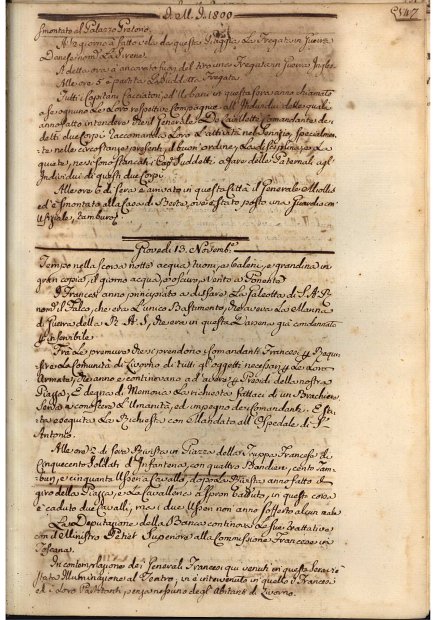 A. M. D. 1800
147
smontato al Palazzo Pretorio.
A 12 giorno à fatto vela da questa Piaggia La Fregata in Guerra
Danese nom.ta La Sirene.
A detta ora à ancorato fuori del
Alle ore 5 è partita La suddetta Fregata.
Tutti i Capitani Cacciatori, ed Urbani in questa sera anno chiamato
a se ognuno Le Loro respettive Compagnie, all' Individui delle quali
anno fatto intendere che il Generale Comandante de
detti due Corpi Raccomanda Loro L'attività nel Servizio, specialmen-
te nelle circostanze presenti, il buon ordine, La disciplina, e La
quiete, ne si sono stancati i Capi suddetti a fare delle Paternali agl'
Individui di questi due Corpi.
Alle ore 6 di sera è arrivato in questa Città il Generale Mollis
ed è smontato alla Casa di Berte, ove è stato posto una Guardia con
Uffiziale, tamburo
Giovedi 13. Novemb.e
Tempo nella scorsa notte acqua, tuoni, e baleni, e grandina in
gran copia, il giorno acqua, e oscuro, vento a Ponente
I Francesi anno principiato a disfare La Galeotta di S. A. R.
nom.ta il Falco, che era L'unico Bastimento, che aveva La Marina
di Guerra della R. A. S., che era in questa Darsena già condannata
inservibile.
Fra Le premure che si prendono i Comandanti Francesi
La Comunità di Livorno di tutti gl'oggetti necessarj Le Loro
Armate, che anno e continovano ad avere Presidi della nostra
Piazza, È degna di Memoria La richiesta fattaci di un Brachiere,
L'Umanità, ed impegno de Comandanti. È sta-
ta eseguita La Richiesta con Mandato all' Ospedale di S.
Antonio.
Alle ore 2 di sera Rivista in Piazza della Truppa Francese di
Cinquecento Soldati d'Infanteria, con quattro Bandiere, cento tam-
buri, e cinquanta Usseri a Cavallo, dopo La Rivista anno fatto il
giro della Piazza, e La Cavalleria a spron battuto, in questa corsa
è caduto due Cavalli, ma i due Usseri non anno sofferto alcun male
La Deputazione della Banca continova Le sue trattative
con il Ministro Petiet Superiore alla Commissione Francese in
Toscana.
In contemplazione dei Generali Francesi qui venuti in questa Sera è
stata Illuminazione al Teatro, vi è intervenuto in quello i Francesi
ed i Loro Partitanti, senza nessuno degl' Abitanti di Livorno.